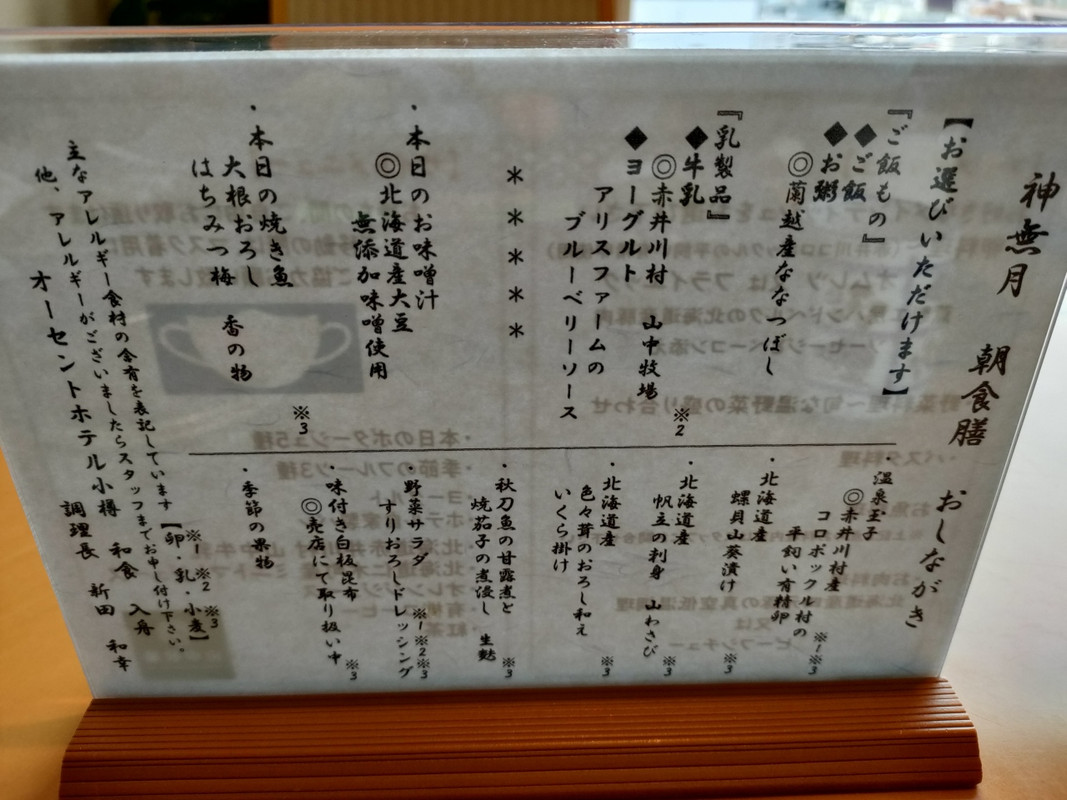 神無月 朝食膳 おしながき
【お選びいただけます】
『ご飯もの』
◆ご飯
◆お粥
◎蘭越産ななつぼし
『乳製品』
◆牛乳
◎赤井川村 山中牧場 ※2
◆ヨーグルト
アリスファームの
ブルーベリーソース
＊＊＊＊＊
・本日のお味噌汁
◎北海道産大豆
無添加味噌使用
※3
・本日の焼き魚
大根おろし
はちみつ梅 香の物
・温泉玉子
◎赤井川村産
コロポックル村の
平飼い有精卵 ※1※3
・北海道産
螺貝山葵漬け ※3
・北海道産
帆立の刺身 山わさび ※3
・北海道産
色々茸のおろし和え
いくら掛け ※3
・秋刀魚の甘露煮と
焼茄子の煮浸し 生麩 ※3
・野菜サラダ ※1※2※3
すりおろしドレッシング
・味付き白板昆布
◎売店にて取り扱い中 ※3
・季節の果物
※1 ※2 ※3
主なアレルギー食材の含有を表記しています【卵・乳・小麦】
他、アレルギーがございましたらスタッフまでお申し付け下さい。
オーセントホテル小樽 和食 入舟
調理長 新田 和幸